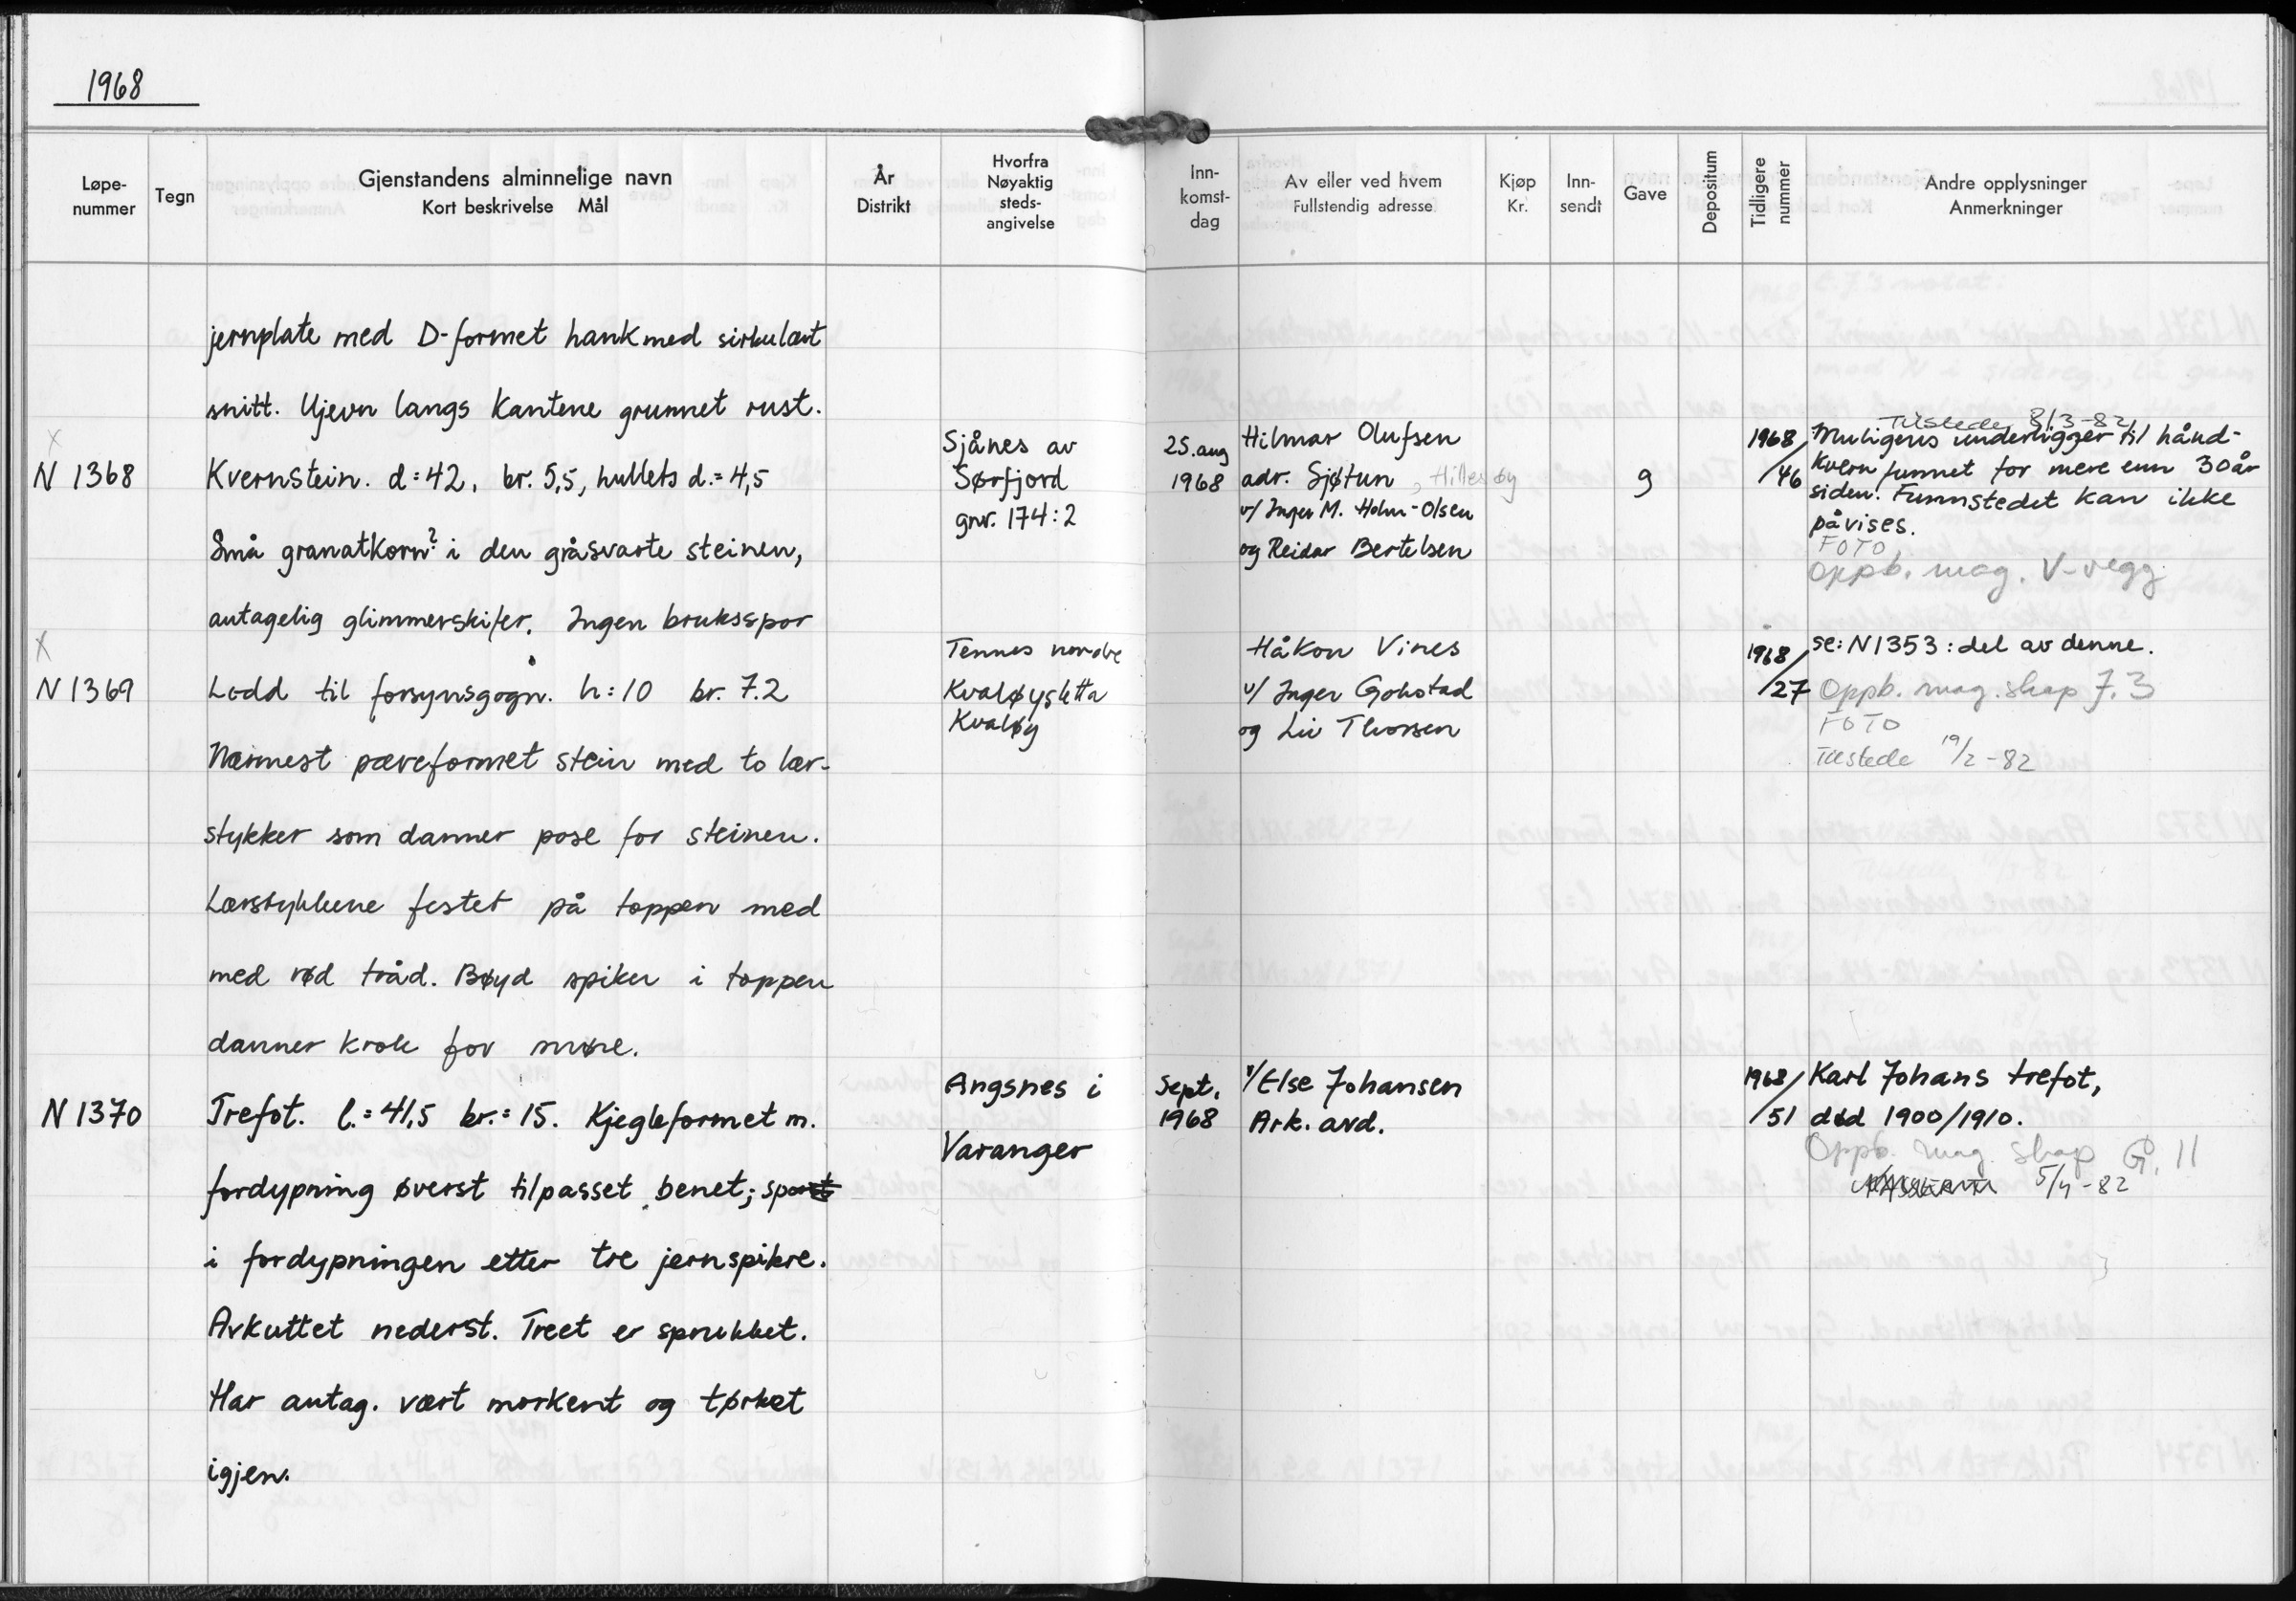 1968
Løpe-
nummer
Tegn
Gjenstandens alminnelige navn
Kort beskrivelse Mål
År
Distrikt
Hvorfra
Nøyaktig
steds-
angivelse
Inn-
komst-
dag
Av eller ved hvem
Fullstendig adresse
Kjøp
Kr.
Inn-
sendt
Gave
Depositum
Tidligere
nummer
Andre opplysninger
Anmerkninger
jernplate med D-formet hank med sirkulært
snitt. Ujevn langs kantene grunnet rust.
x
N 1368
Kvernstein. d:42, br. 5,5, hullets d.=4,5
Små granatkorn? i den gråsvarte steinen,
antagelig glimmerskifer. Ingen bruksspor
Sjånes av
Sørfjord
gnr. 174:2
25. aug
1968
Hilmar Olufsen
adr. Sjøtun, Hillesøy
v/ Inger M. Holm-Olsen
og Reidar Bertelsen
g
1968/
/46
Tilstede 8/3-82
Muligens underligger til hånd-
kvern funnet for mere enn 30 år
siden. Funnstedet kan ikke
påvises.
FOTO
Oppb. mag. V-vegg
x
N 1369
Lodd til forsynsgogn. h:10 br. 7.2
Nærmest pæreformet stein med to lær-
stykker som danner pose for steinen.
Lærstykkene festet på toppen med
med rød tråd. Bøyd spiker i toppen
danner krok for snøre.
Tennes nordre
Kvaløysletta
Kvaløy
Håkon Vines
v/ Inger
og Liv Thorsen
1968/
/27
se: N1353: del av denne.
Oppb. mag. skap 7.3
FOTO
Tilstede 19/2-82
N 1370
Trefot. l.=41,5 br.=15. Kjegleformet m.
fordypning øverst tilpasset benet; spor
i fordypningen etter tre jernspikre.
Avkuttet nederst. Treet er sprukket.
Har antag. vært morkent og tørket
igjen.
Angsnes i
Varanger
Sept.
1968
v/Else Johansen
Ark. avd.
1968/
/51
Karl Johans trefot,
død 1900/1910.
Oppb. mag. skap G. 11
5/4-82